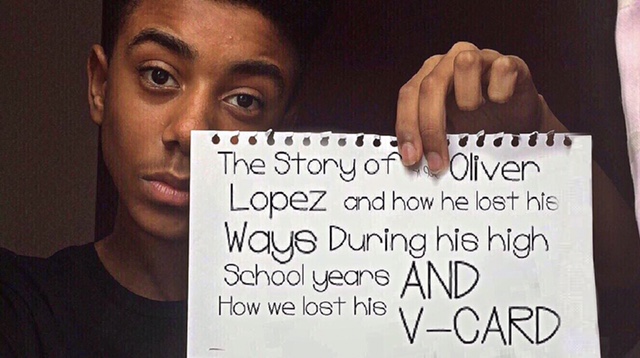 The Story of Oliver
Lopez and how he lost his
Ways During his high
School years AND
How we lost his V-CARD